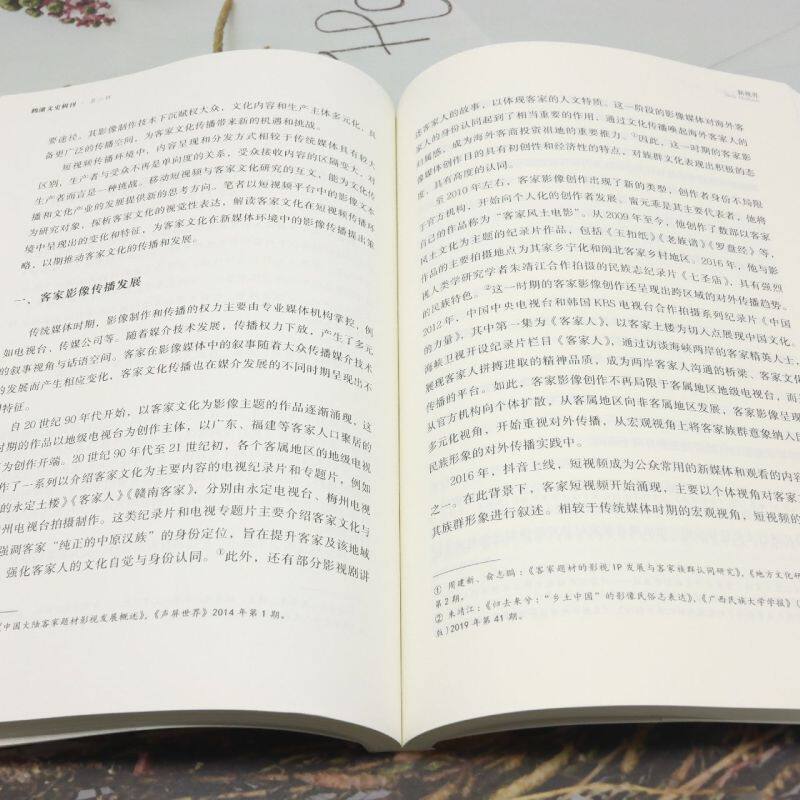 文史辑刊
要途径。其影像制作技术下沉赋权大众，文化内容和生产主体多元化，具
备更广泛的传播空间，为客家文化传播带来新的机遇和挑战。
短视频传播环境中，内容呈现和分发方式相较于传统媒体具有较大
区别，生产者与受众不再是单向度的关系，受众接收内容的区隔变大，对
生产者而言是一种挑战。移动短视频与客家文化研究的互文，能为文化传
播和文化产业的发展提供新的思考方向。笔者以短视频平台中的影像文本
为研究对象，探析客家文化的视觉性表达，解读客家文化在短视频传播环
境中呈现出的变化和特征，为客家文化在新媒体环境中的影像传播提出策
略，以期推动客家文化的传播和发展。
一、客家影像传播发展
传统媒体时期，影像制作和传播的权力主要由专业媒体机构掌控，例
如电视台、传媒公司等。随着媒介技术发展，传播权力下放，产生了多元
的叙事视角与话语空间。客家在影像媒体中的叙事随着大众传播媒介技术
的发展而产生相应变化，客家文化传播也在媒介发展的不同时期呈现出不
特征。
自20世纪90年代开始，以客家文化为影像主题的作品逐渐涌现，这
时期的作品以地级电视台为创作主体，以广东、福建等客家人口聚居的
为创作开端。20世纪90年代至21世纪初，各个客属地区的地级电视
作了一系列以介绍客家文化为主要内容的电视纪录片和专题片，例如
的永定土楼》《客家人》《赣南客家》，分别由永定电视台、梅州电视
州电视台拍摄制作。这类纪录片和电视专题片主要介绍客家文化与
强调客家“纯正的中原汉族”的身份定位，旨在提升客家及该地域
，强化客家人的文化自觉与身份认同。①此外，还有部分影视剧讲
中国大陆客家题材影视发展概述》，《声屏世界》2014年第1期。
新视界
述客家人的故事，以体现客家的人文特质。这一阶段的影像媒体对海外客
家人的身份认同起到了相当重要的作用，通过文化传播唤起海外客家人的
归属感，成为海外客商投资祖地的重要推力。①因此，这一时期的客家影
像媒体创作目的具有初创性和经济性的特点，对族群文化表现出积极的态
度，具有高度的认同。
至2010年左右，客家影像创作出现了新的类型，创作者身份不局限
于官方机构，开始向个人化的创作者发展。鬼叔中是其主要代表者，他将
自己的作品称为“客家风土电影”。从2009年至今，他创作了数部以客家
风土文化为主题的纪录片作品，包括《玉扣纸》《老族谱》《罗盘经》等，
作品的主要拍摄地点为其家乡宁化和闽北客家乡村地区。2016年，他与影
视人类学研究学者朱靖江合作拍摄的民族志纪录片《七圣庙》，具有强烈
的民族特色。②这一时期的客家影像创作还呈现出跨区域的对外传播趋势。
2012年，中国中央电视台和韩国KBS电视台合作拍摄系列纪录片《中国
的力量》，其中第一集为《客家人》，以客家土楼为切入点展现中国文化。
海峡卫视开设纪录片栏目《客家人》，通过访谈海峡两岸的客家精英人士，
展现客家人拼搏进取的精神品质，成为两岸客家人沟通的桥梁、客家文化
传播的平台。如此，客家影像创作不再局限于客属地区地级电视台，而
从官方机构向个体扩散，从客属地区向非客属地区发展，客家影像呈现
多元化视角，开始重视对外传播，从宏观视角上将客家族群意象纳入
民族形象的对外传播实践中。
2016年，抖音上线，短视频成为公众常用的新媒体和观看的内容
之一。在此背景下，客家短视频开始涌现，主要以个体视角对客家
其族群形象进行叙述。相较于传统媒体时期的宏观视角，短视频的
① 周建新、俞志鹏：《客家题材的影视IP发展与客家族群认同研究》，《地方文化研
第2期。
② 朱靖江：《归去来兮：“乡土中国”的影像民俗志表达》，《广西民族大学学报》（
版）2019年第41期。